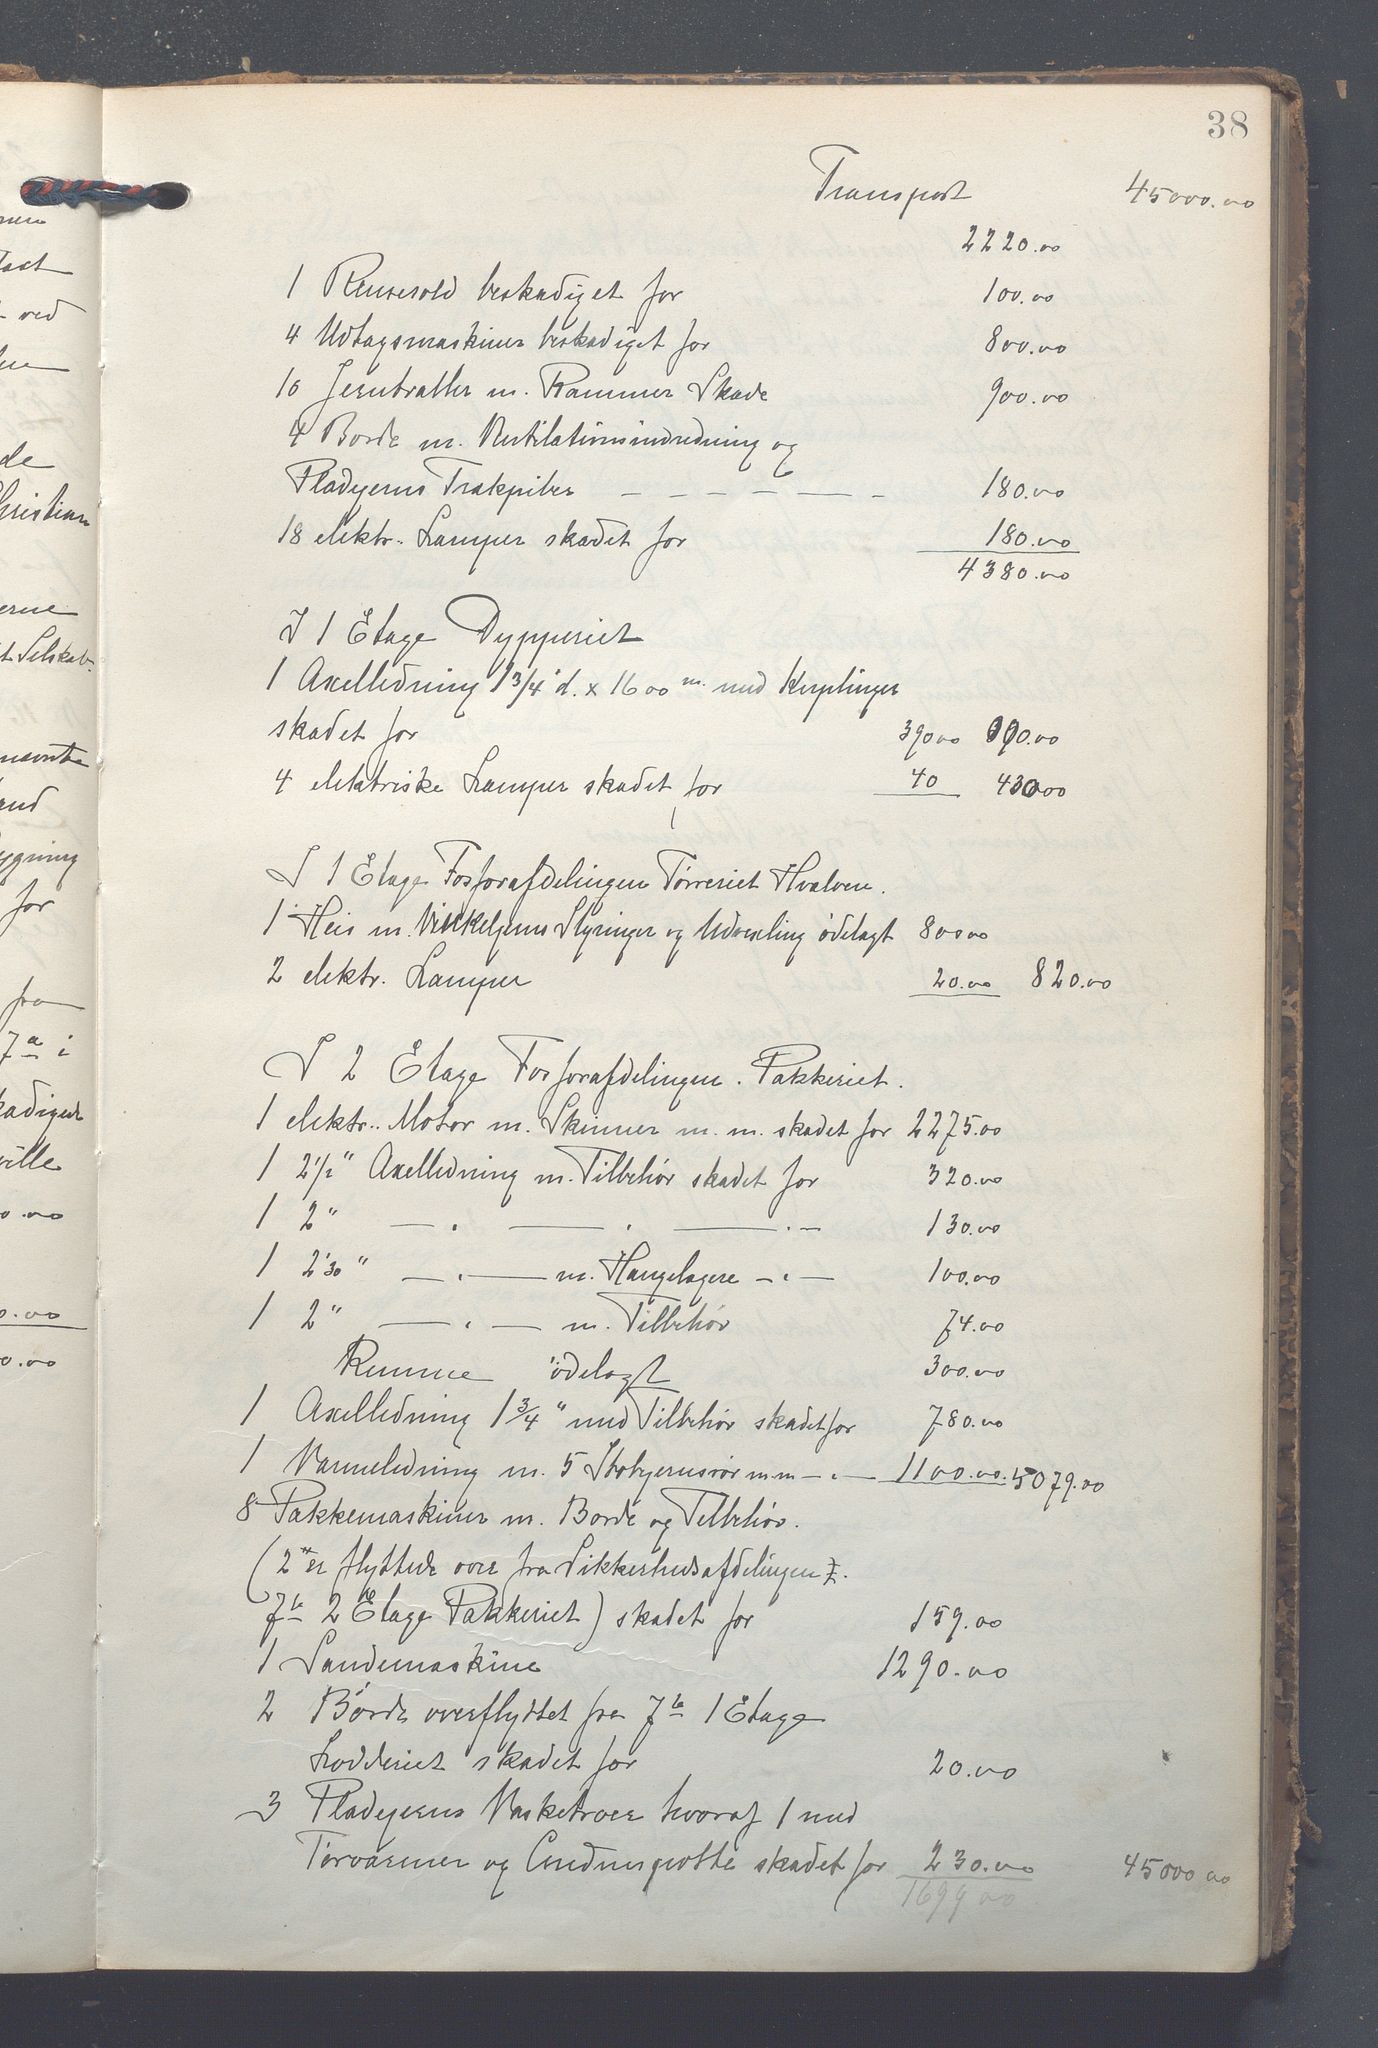 38
Transport 45000.00
2220.00
1 Rensesold beskadiget for 100.00
4 Udtagsmaskiner beskadiget for 800.00
10 Jerntraller m. Rammer Skade 900.00
4 Borde m. Ventilationsindredning og
Pladejerns Trækpiber — — — — — — 180.00
18 elektr. Lamper skadet for 180.00
4380.00
I 1 Etage Dypperiet
1 Axelledning 1 3/4" d. x 1600 m. med Kuplinger
skadet for 390.00 390.00
4 elektriske Lamper skadet for 40 430.00
I 1 Etage Fosforafdelingen Tørreriet Hvalven.
1 Heis m. Vinkeljerns Styringer og Udvexling ödelagt 800.00
2 elektr. Lamper 20.00 820.00
I 2 Etage Fosforafdelingen. Pakkeriet.
1 elektr. Motor m. Skinner m. m. skadet for 2275.00
1 2 1/2" Axelledning m. Tilbehör skadet for 320.00
1 2" — " — — " — — " — 130.00
1 2'30" — " — m. Hængelagere — " — 100.00
1 2" — " — m. Tilbehör 74.00
Remme ödelagt 300.00
1 Axelledning 1 3/4" med Tilbehör skadet for 780.00
1 Varmeledning m. 5 Støbjernsrör m.m — " — 1100.00 5079.00
8 Pakkemaskiner m. Borde og Tilbehör.
(2 er flyttede over fra Sikkerhedsafdelingen
7b 2 Etage Pakkeriet) skadet for 159.00
1 Sandemaskine 1290.00
2 Borde overflyttet fra 7b 1 Etage
Lodderiet skadet for 20.00
3 Pladejerns Vasketroer hvoraf 1 med
Törvarmer og skadet for 230.00 45000.00
1699.00
nævnte
and
ygning
for
fra
7a i
ville
ved
de
Christian
erne
t Selskab